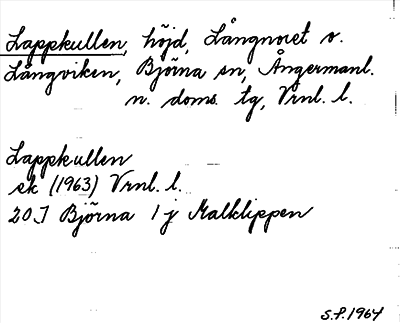 Lappkullen, höjd, Långnoret o.
Långviken, Björna sn, Ångermanl.
n. doms. tg, Vrnl. l.
Lappkullen
ek (1963) Vrnl. l.
20J Björna 1 j Malklippen
S.P. 1964